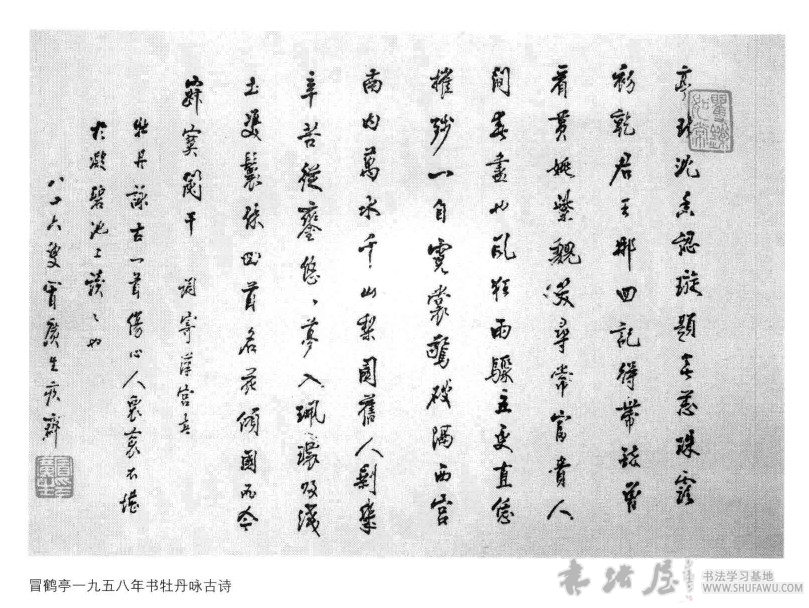 亭北沈香認璇題蕊珠露
初乾君王那回記得帶笑曾
看黃姚紫魏笑尋常富貴人
間春盡也狂雨驟五更直恁
摧殘一自霓裳驚破隔西宮
南内萬水千山梨園舊人剩
辛苦從鑾悠、夢入珮環淺
土雙鬟休回首名花傾國而今
寂寞闌干 調寄漢宮春
牡丹詠古一首傷心人哀不堪
於凝碧池上讀之也
八十六叟冒廣生疚齋
冒鹤亭一九五八年书牡丹咏古诗
书法屋
书法学习基地
WWW.SHUFAWU.COM